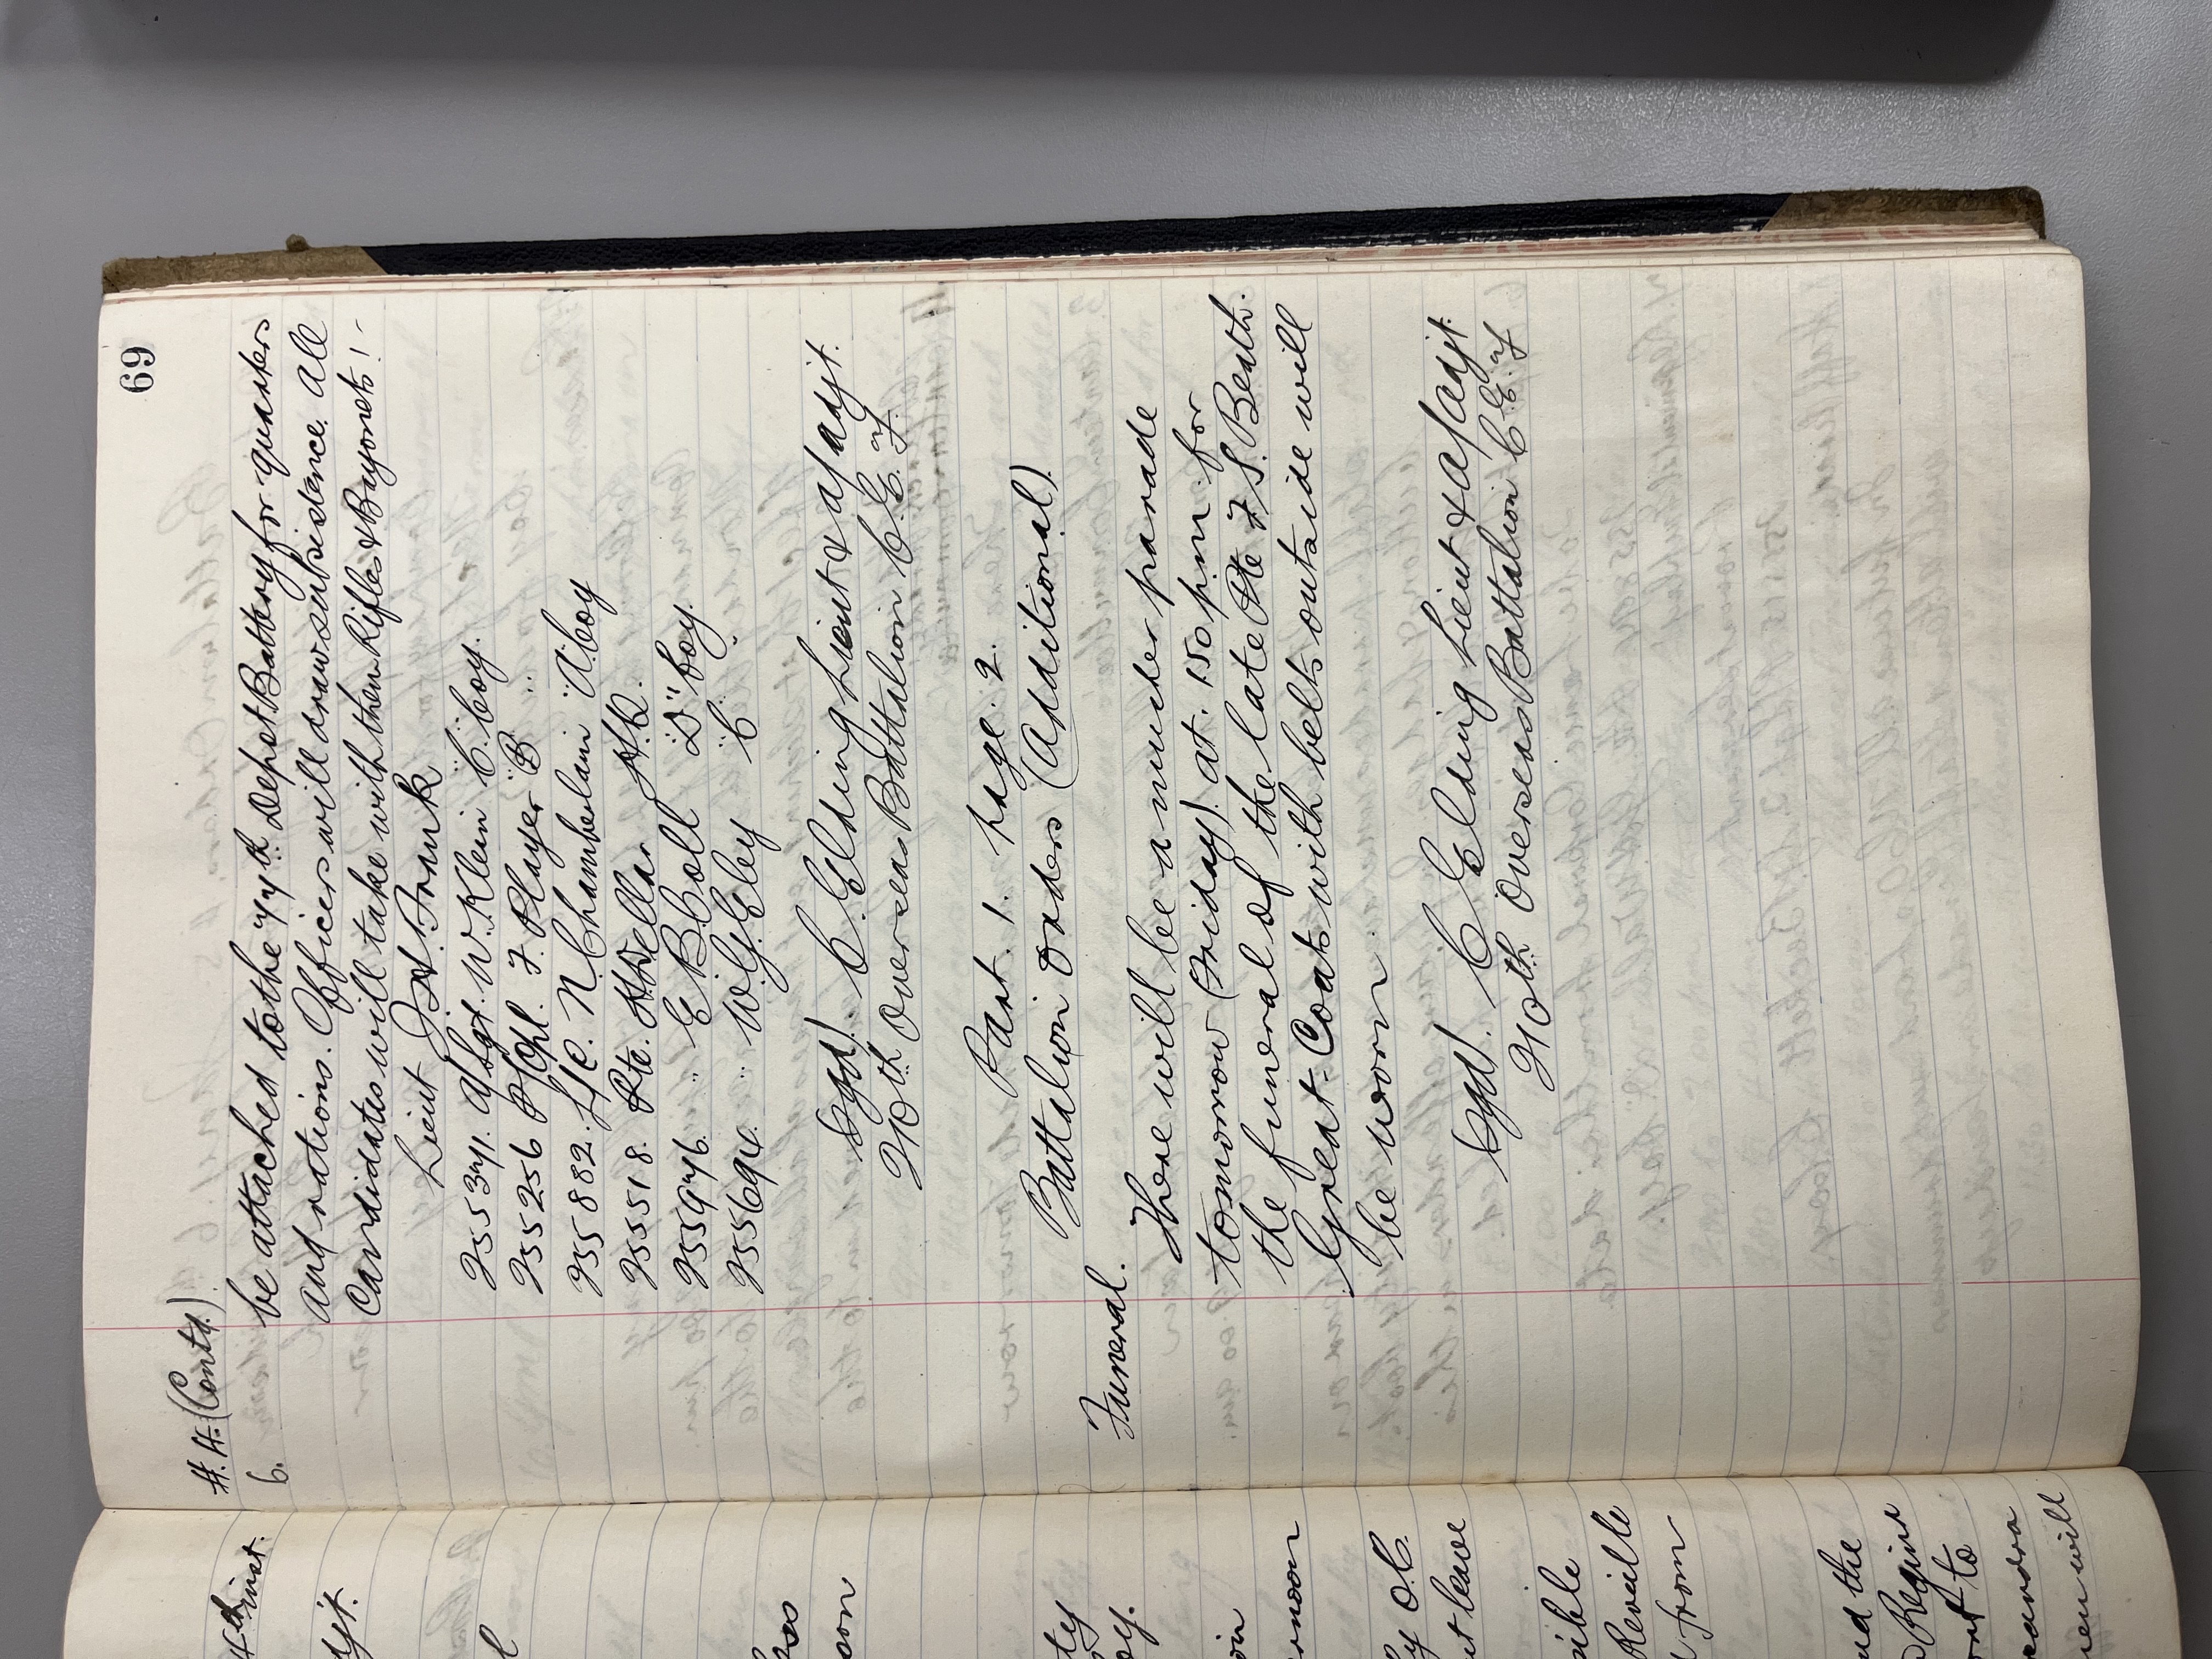 69
H.H. (Contd.)
6. be attached to the 77th Depot Battery for quarters
and rations. Officers will draw subsistence. All
Candidates will take with them Rifles & Bayonets! -
Lieut J. H. Frank
255371. A/Sgt. W. Klein "C" Coy.
255256 P/Cpl. F. Player "B" "
255882. L/C. N. Chamberlain "A" Coy
255518. Pte. H. Wellar H.Q.
255976. " E. B. Coll "D" Coy.
255694. " W. G. Eley "C"
Sgd/. C. Elding Lieut & a/adjt.
210th Overseas Battalion C.E.F.
Part 1. page 2.
Battalion Orders (Additional).
Funeral. There will be a muster parade
tomorrow (Friday) at 1.50 p.m. for
the funeral of the late Pte F. S. Beath.
Great-Coats with belts outside will
be worn
Sgd/. C Elding Lieut & a/adjt.
210th Overseas Battalion C.E.F.
4th inst.
adjt.
noon
Coy.
rnoon
O.C.
leave
Reveille
from
and the
Regina
to
men will